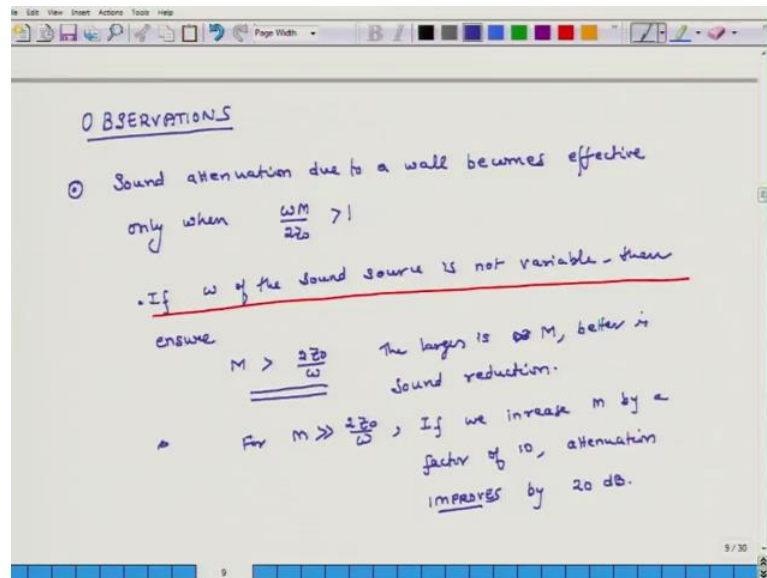 le Edit View Insert Actions Tools Help
Page Width
B I
OBSERVATIONS
Sound attenuation due to a wall becomes effective
only when ωM/2Z0 >1
• If ω of the sound source is not variable - then
ensure
M > 2Z0/ω The larger is M, better is
sound reduction.
• For m >> 2Z0/ω, If we inrease m by a
factor of 10, attenuation
IMPROVES by 20 dB.
9 / 30
9